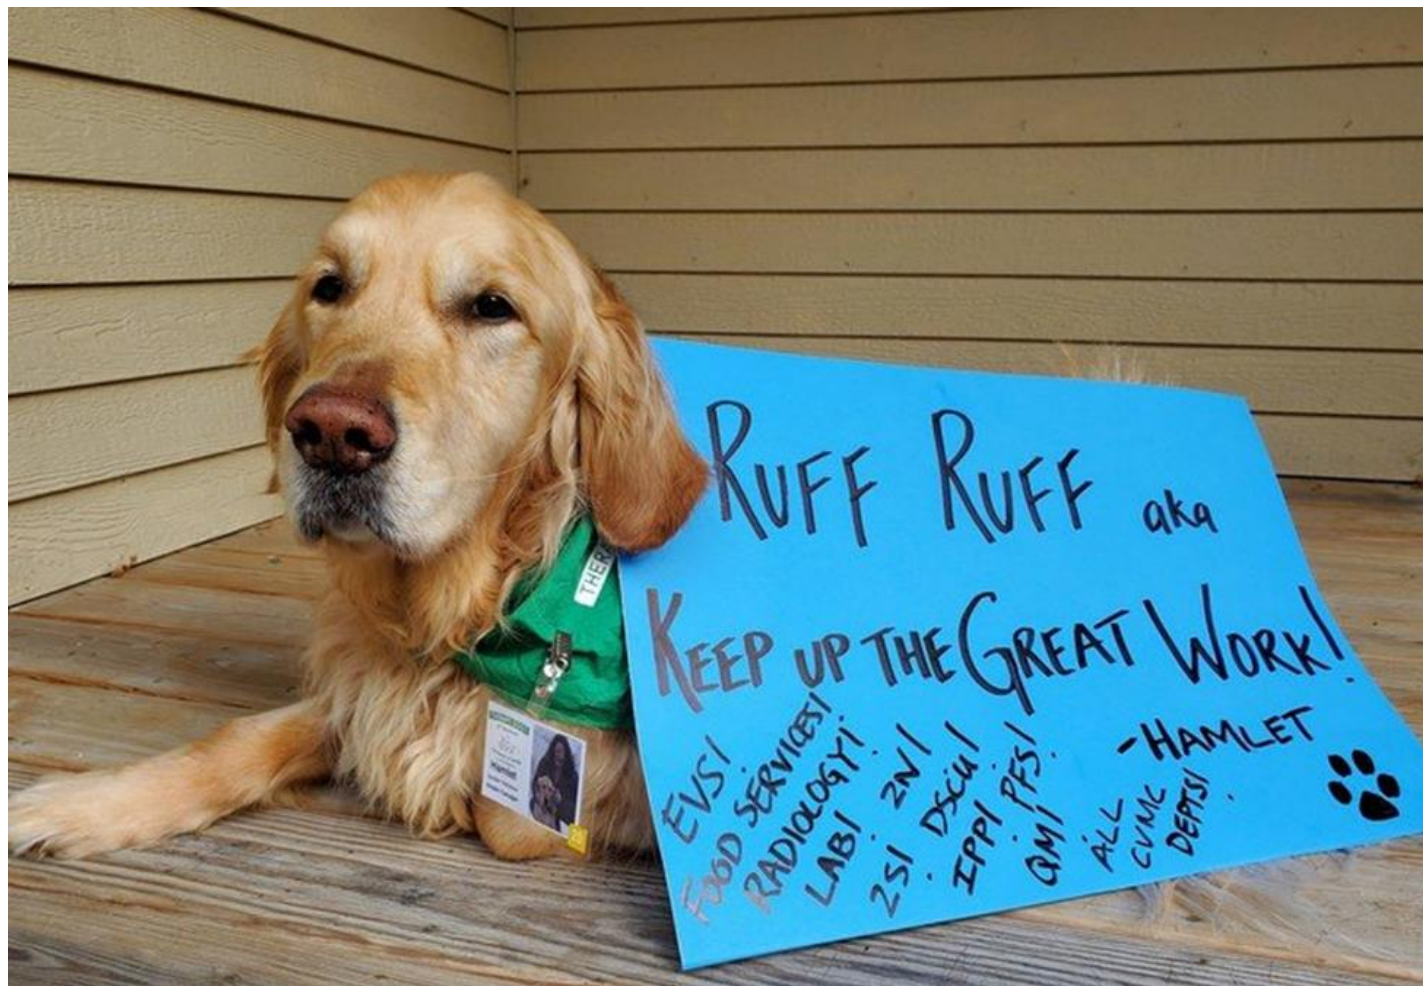 RUFF RUFF aka
KEEP UP THE GREAT WORK!
-HAMLET
EVS!
FOOD SERVICES!
RADIOLOGY!
LAB! 2N!
2S! DSCU!
IPP! PFS!
QM!
ALL
CVMC
DEPTS!
THER
Hamlet